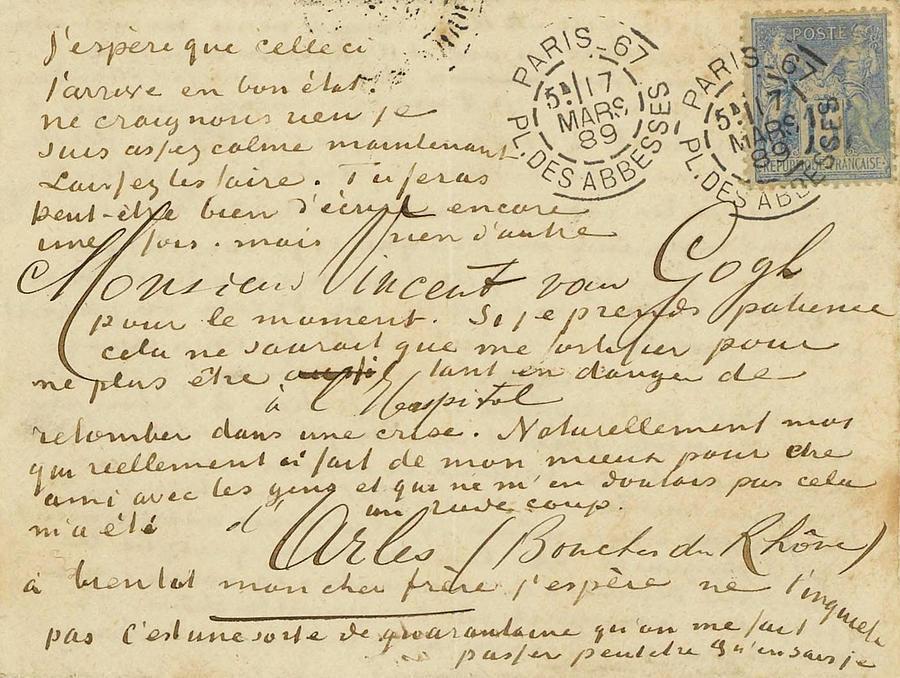 j'espère que celle ci
t'arrive en bon état.
ne craignons rien je
suis assez calme maintenant.
Laissez les faire. Tu feras
peut-être bien d'écrire encore
une fois. mais rien d'autre
Monsieur Vincent van Gogh
pour le moment. Si je prends patience
cela ne saurait que me fortifier pour
ne plus être aussi tant en danger de
à l'Hospital
retomber dans une crise. Naturellement moi
qui reellement ai fait de mon mieux pour être
ami avec les gens et qui ne m'en doutais pas cela
m'a été un rude coup.
d'Arles (Bouches du Rhône)
à bientôt mon cher frère j'espère ne t'inquiete
pas c'est une sorte de quarantaine qu'on me fait
passer peut être qu'en sais je
PARIS_67
5E/17
MARS
89
PL. DES ABBESSES
PARIS_67
5E/17
MARS
89
PL. DES ABBESSES
POSTE
REPUBLIQUE FRANÇAISE